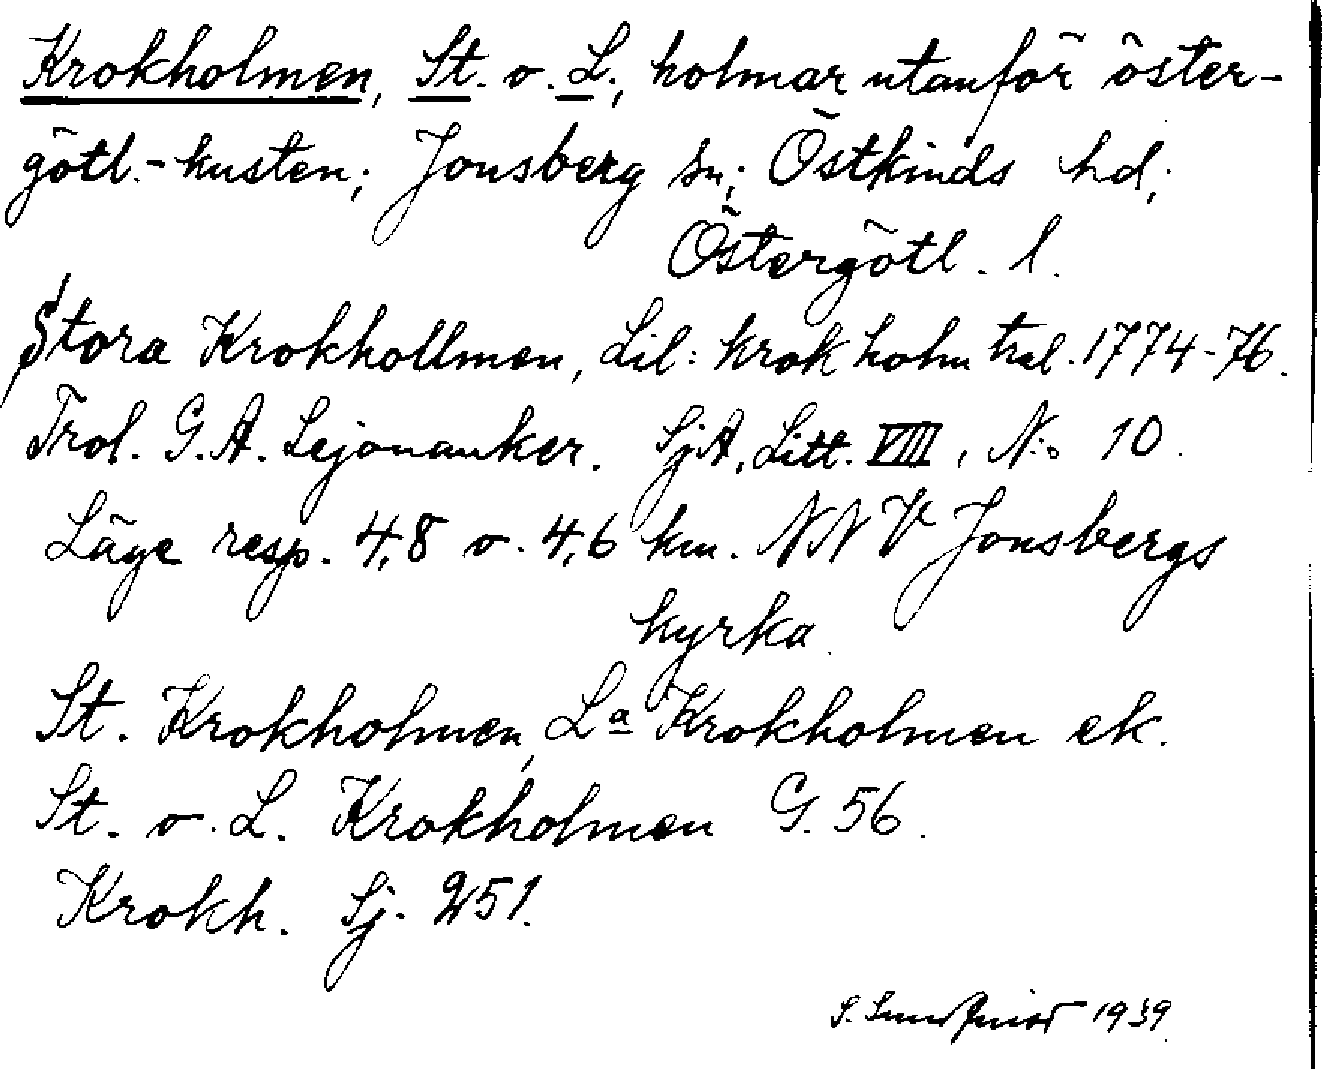 Krokholmen, St. o. L., holmar utanför öster-
götl.-kusten; Jonsberg sn; Östkinds hd;
Östergötl. l.
Stora Krokhollmen, Lil: krok holm trol. 1774-76.
Trol. G. A. Lejonanker. SjA, Litt. VIII, N:o 10.
Läge resp. 4,8 o. 4,6 km. NNV Jonsbergs
kyrka.
St. Krokholmen, La Krokholmen ek.
St. o. L. Krokholmen G. 56.
Krokh. Sj. 251.
S. Sundquist 1939